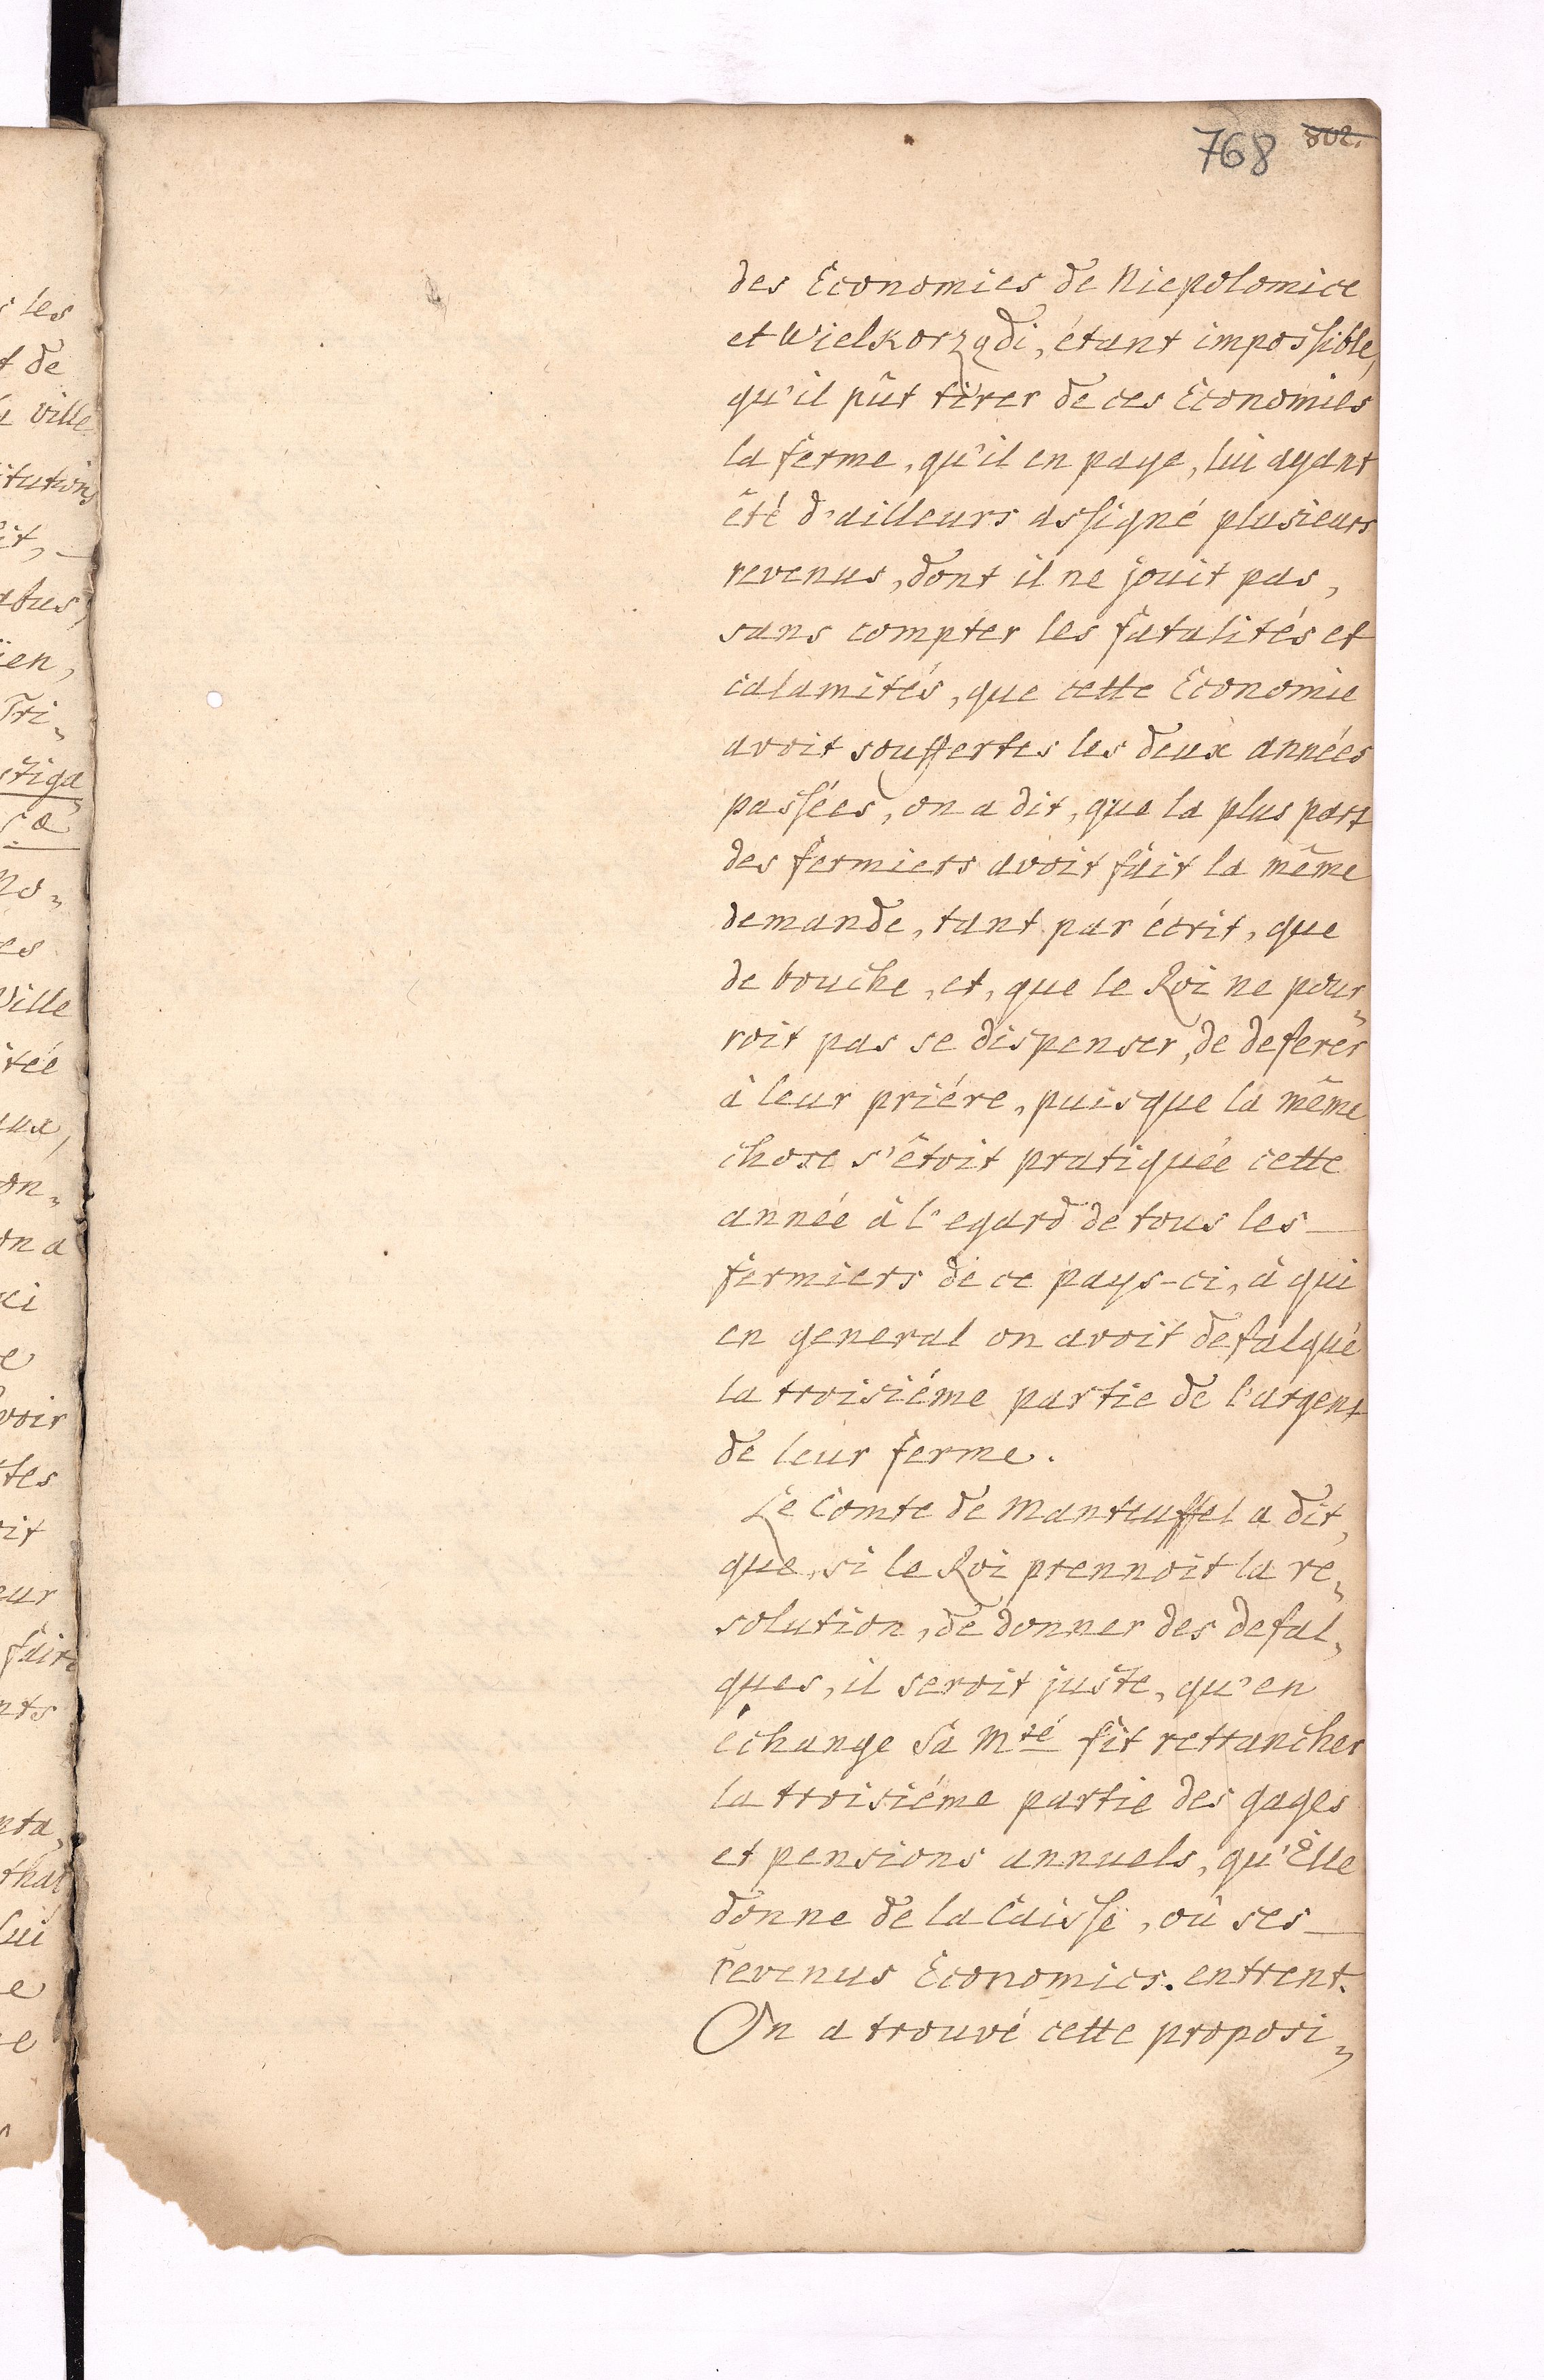 768 802.
des Economies de Niepolomice
et Wielkorządi, étant impossible,
qu'il pût tirer de ces Economies
la ferme, qu'il en paye, lui ayant
été d'ailleurs assigné plusieurs
revenus, dont il ne jouit pas,
sans compter les fatalités et
calamités, que cette Economie
avoit souffertes les deux années
passées, on a dit, que la plus part
des fermiers avoit fait la même
demande, tant par écrit, que
de bouche, et, que le Roi ne pour„
roit pas se dispenser, de deferer
à leur priére, puisque la même
chose s'étoit pratiquée cette
année à l'egard de tous les
fermiers de ce pays-ci, à qui
en general on avoit defalqué
la troisiéme partie de l'argent
de leur ferme.
Le Comte de Manteuffel a dit,
que, si le Roi prennoit la re„
solution, de donner des defal„
ques, il seroit juste, qu'en
échange Sa Mté fit rettancher
la troisiéme partie des gages
et pensions annuels, qu'Elle
donne de la Caisse, où ses
revenus Economics. entrent.
On a trouvé cette proposi„
s les
t de
ville
itutions
it,
abus,
ien,
Tri„
stiga„
ca
no„
es
Ville
itée
ux,
on„
on a
ci
e
voir
tes
it
eur
faire
nts
nta„
that
lui
e
e